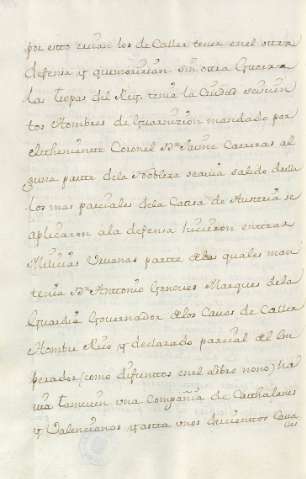 por esto creian los de Caller tener en el otra
defensa y que morirían sin otra Guerra
las tropas del Rey, tenia la Ciudad
tos Hombres de Guarnizion mandado por
el theniente Coronel Dn Jaime Carreras al
guna parte de la Nobleza se avia salido della
los mas parciales de la Causa de Austria se
aplicaron a la defensa hicieron entrar
Milicias Urbanas parte de las quales man
tenia Dn Antonio Genoves Marques de la
Guardia Governador de los Cavos de Caller
Hombre Rico y declarado parcial del Em
perador (como diximos en el Libro nono) ha
via tambien una Compañia de Cathalanes
y Valencianos y asta unos Cava